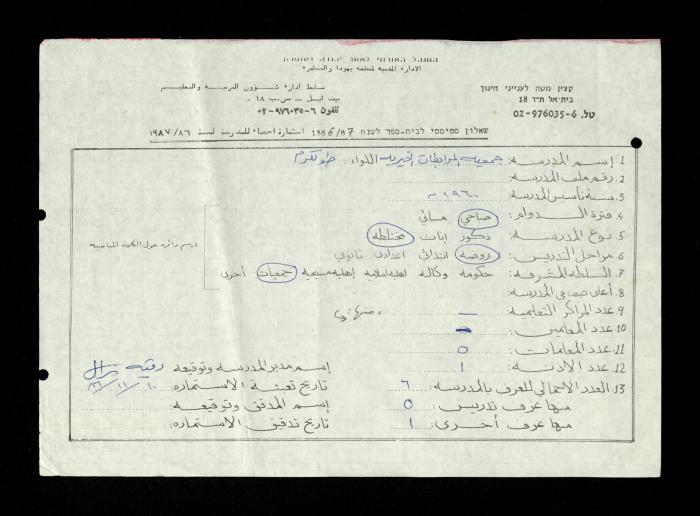 המנהל האזרחי לאזור יהודה ושומרון
الادارة المدنية لمنطقة يهودا والسامرة
קצין מטה לענייני חינוך
ضابط ادارة شؤون التربية والتعليم
בית-אל ת"ד 18
بيت ايل - ص.ب ١٨
טל. 02-976035-6
تلفون ٦-٩٧٦٠٣٥-٠٢
שאלון סטיסטי לבית-ספר לשנת 1986/87 استمارة احصاء للمدرسة لسنة ١٩٨٧/٨٦
١. إسم المدرسة: جمعية المرابطات الخيرية اللواء: طولكرم
٢. رقم ملف المدرسة:
٣. سنة تأسيس المدرسة: ١٩٦٠ م
٤. فترة الدوام: صباحي مسائي
٥. نوع المدرسة: ذكور إناث مختلطة
ارسم دائرة حول الكلمة المناسبة
٦. مراحل التدريس: روضة ابتدائي اعدادي ثانوي
٧. السلطة المشرفة: حكومة وكالة اهلية اسلامية إهلية مسيحية جمعيات أخرى
٨. أعلى صف في المدرسة:
٩. عدد المراكز التعليمية: — منها:
١٠. عدد المعلمين: —
١١. عدد المعلمات: ٥
١٢. عدد الاذنة: ١
١٣. العدد الاجمالي للغرف بالمدرسة: ٦
منها غرف تدريس: ٥
منها غرف أخرى: ١
إسم مدير المدرسة وتوقيعه: رقية
تاريخ تعبئة الاستمارة:
إسم المدقق وتوقيعه:
تاريخ تدقيق الاستمارة: